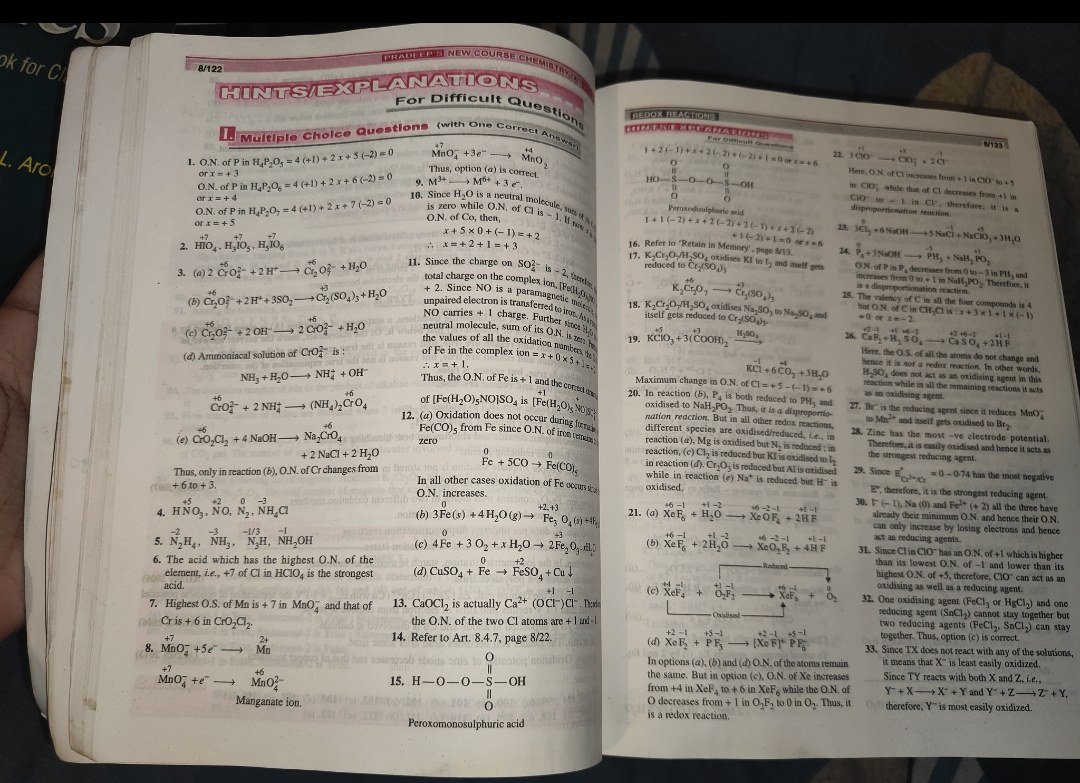 ok for Cl
L. Aro
8/122
PRADEEP'S NEW COURSE CHEMISTRY
HINTS/EXPLANATIONS
For Difficult Questions
I. Multiple Choice Questions (with One Correct Answer)
1. O.N. of P in H₄P₂O₅ = 4 (+1) + 2 x + 5 (–2) = 0
or x = + 3
O.N. of P in H₄P₂O₆ = 4 (+1) + 2 x + 6 (–2) = 0
or x = + 4
O.N. of P in H₄P₂O₇ = 4 (+1) + 2 x + 7 (–2) = 0
or x = + 5
+7 +7 +7
2. HIO₄, H₃IO₅, H₅IO₆
+6 +6
3. (a) 2 CrO₄²⁻ + 2 H⁺ ⟶ Cr₂O₇²⁻ + H₂O
+6 +3
(b) Cr₂O₇²⁻ + 2H⁺ + 3SO₂ ⟶ Cr₂(SO₄)₃ + H₂O
+6 +6
(c) Cr₂O₇²⁻ + 2 OH⁻ ⟶ 2 CrO₄²⁻ + H₂O
(d) Ammoniacal solution of CrO₄²⁻ is :
NH₃ + H₂O ⟶ NH₄⁺ + OH⁻
+6 +6
CrO₄²⁻ + 2 NH₄⁺ ⟶ (NH₄)₂CrO₄
+6 +6
(e) CrO₂Cl₂ + 4 NaOH ⟶ Na₂CrO₄
+ 2 NaCl + 2 H₂O
Thus, only in reaction (b), O.N. of Cr changes from
+ 6 to + 3.
+5 +2 0 –3
4. HNO₃, NO, N₂, NH₄Cl
–2 –3 –1/3 –1
5. N₂H₄, NH₃, N₃H, NH₂OH
6. The acid which has the highest O.N. of the
element, i.e., +7 of Cl in HClO₄ is the strongest
acid.
7. Highest O.S. of Mn is + 7 in MnO₄⁻ and that of
Cr is + 6 in CrO₂Cl₂.
+7 2+
8. MnO₄⁻ + 5e⁻ ⟶ Mn
+7 +6
MnO₄⁻ + e⁻ ⟶ MnO₄²⁻
Manganate ion.
+7 +4
MnO₄⁻ + 3e⁻ ⟶ MnO₂
Thus, option (a) is correct.
9. M³⁺ ⟶ M⁶⁺ + 3 e⁻.
10. Since H₂O is a neutral molecule, sum of
is zero while O.N. of Cl is – 1. If
O.N. of Co, then,
x + 5 × 0 + (– 1) = + 2
∴ x = + 2 + 1 = + 3
11. Since the charge on SO₄²⁻ is – 2, therefore,
total charge on the complex ion, [Fe(H₂O)₅
+ 2. Since NO is a paramagnetic
unpaired electron is transferred to iron.
NO carries + 1 charge. Further since
neutral molecule, sum of its O.N. is zero
the values of all the oxidation numbers, the
of Fe in the complex ion = x + 0 × 5 + 1 = + 2
∴ x = + 1.
Thus, the O.N. of Fe is + 1 and the correct
+1
of [Fe(H₂O)₅NO]SO₄ is [Fe(H₂O)₅ NO]
12. (a) Oxidation does not occur during
Fe(CO)₅ from Fe since O.N. of iron remains
zero
0 0
Fe + 5CO → Fe(CO)₅
In all other cases oxidation of Fe occurs
O.N. increases.
0 +2,+3
(b) 3 Fe(s) + 4 H₂O (g) → Fe₃ O₄ (s) + 4H
0 +3
(c) 4 Fe + 3 O₂ + x H₂O → 2Fe₂O₃.
0 +2
(d) CuSO₄ + Fe → FeSO₄ + Cu ↓
+1 –1
13. CaOCl₂ is actually Ca²⁺ (OCl⁻)Cl⁻.
the O.N. of the two Cl atoms are + 1 and – 1.
14. Refer to Art. 8.4.7, page 8/22.
O
15. H—O—O—S—OH
O
Peroxomonosulphuric acid
REDOX REACTIONS
8/123
HINTS/EXPLANATIONS
For Difficult Questions
1 + 2 (– 1) + x + 2 (– 2) + (– 2) + 1 = 0 or x = + 6
O O
HO—S—O—O—S—OH
O O
Peroxodisulphuric acid
1 + 1 (– 2) + x + 2 (– 2) + 2 (– 1) + x + 2 (– 2)
+ 1 (– 2) + 1 = 0 or x = + 6
16. Refer to 'Retain in Memory', page 8/13.
17. K₂Cr₂O₇/H₂SO₄ oxidises KI to I₂ and itself gets
reduced to Cr₂(SO₄)₃
+6 +3
K₂Cr₂O₇ ⟶ Cr₂(SO₄)₃
18. K₂Cr₂O₇/H₂SO₄ oxidises Na₂SO₃ to Na₂SO₄ and
itself gets reduced to Cr₂(SO₄)₃.
+5 +3 H₂SO₄
19. KClO₃ + 3 (COOH)₂ ⟶
–1 +4
KCl + 6 CO₂ + 3H₂O
Maximum change in O.N. of Cl = + 5 – (– 1) = + 6
20. In reaction (b), P₄ is both reduced to PH₃ and
oxidised to NaH₂PO₂. Thus, it is a disproportio-
nation reaction. But in all other redox reactions,
different species are oxidised/reduced, i.e., in
reaction (a), Mg is oxidised but N₂ is reduced ; in
reaction, (c) Cl₂ is reduced but KI is oxidised to I₂
in reaction (d). Cr₂O₃ is reduced but Al is oxidised
while in reaction (e) Na⁺ is reduced but H⁻ is
oxidised.
+6 –1 +1 –2 +6 –2 –1 +1 –1
21. (a) XeF₆ + H₂O ⟶ XeOF₄ + 2H F
+6 –1 +1 –2 +6 –2 –1 +1 –1
(b) XeF₆ + 2H₂O ⟶ XeO₂F₂ + 4H F
Reduced
+4 –1 +1 –1 +6 –1 0
(c) XeF₄ + O₂F₂ ⟶ XeF₆ + O₂
Oxidised
+2 –1 +5 –1 +2 –1 +5 –1
(d) Xe F₂ + P F₅ ⟶ [Xe F]⁺ P F₆⁻
In options (a), (b) and (d) O.N. of the atoms remain
the same. But in option (c), O.N. of Xe increases
from +4 in XeF₄ to + 6 in XeF₆ while the O.N. of
O decreases from + 1 in O₂F₂ to 0 in O₂. Thus, it
is a redox reaction.
+1 +5 –1
22. 3 ClO⁻ ⟶ ClO₃⁻ + 2 Cl⁻
Here, O.N. of Cl increases from + 1 in ClO⁻ to + 5
in ClO₃⁻ while that of Cl decreases from +1 in
ClO⁻ to – 1 in Cl⁻. therefore, it is a
disproportionation reaction.
23. 3Cl₂ + 6 NaOH ⟶ 5 NaCl + NaClO₃ + 3 H₂O
24. P₄ + 3 NaOH ⟶ PH₃ + NaH₂ PO₂
O.N. of P in P₄ decreases from 0 to – 3 in PH₃ and
increases from 0 to + 1 in NaH₂PO₂. Therefore, it
is a disproportionation reaction.
25. The valency of C in all the four compounds is 4
but O.N. of C in CH₃Cl is : x + 3 × 1 + 1 × (– 1)
= 0 or x = – 2.
+2 –1 +1 +6 –2 +2 +6 –2 +1 –1
26. Ca F₂ + H₂ S O₄ ⟶ Ca S O₄ + 2 H F
Here, the O.S. of all the atoms do not change and
hence it is not a redox reaction. In other words,
H₂SO₄ does not act as an oxidising agent in this
reaction while in all the remaining reactions it acts
as an oxidising agent.
27. Br⁻ is the reducing agent since it reduces MnO₄⁻
to Mn²⁺ and itself gets oxidised to Br₂.
28. Zinc has the most –ve electrode potential.
Therefore, it is easily oxidised and hence it acts as
the strongest reducing agent.
29. Since E° Cr³⁺/Cr = – 0·74 has the most negative
E°, therefore, it is the strongest reducing agent.
30. I⁻ (– 1), Na (0) and Fe²⁺ (+ 2) all the three have
already their minimum O.N. and hence their O.N.
can only increase by losing electrons and hence
act as reducing agents.
31. Since Cl in ClO⁻ has an O.N. of +1 which is higher
than its lowest O.N. of –1 and lower than its
highest O.N. of +5, therefore, ClO⁻ can act as an
oxidising as well as a reducing agent.
32. One oxidising agent (FeCl₃ or HgCl₂) and one
reducing agent (SnCl₂) cannot stay together but
two reducing agents (FeCl₂, SnCl₂) can stay
together. Thus, option (c) is correct.
33. Since TX does not react with any of the solutions,
it means that X⁻ is least easily oxidized.
Since TY reacts with both X and Z, i.e.,
Y⁻ + X ⟶ X⁻ + Y and Y⁻ + Z ⟶ Z⁻ + Y,
therefore, Y⁻ is most easily oxidized.